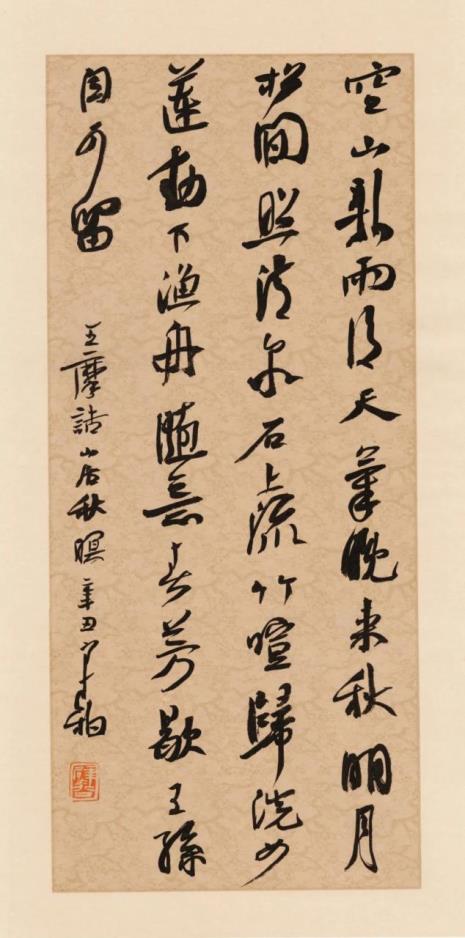 空山新雨後天氣晚来秋明月
松間照清泉石上流竹喧歸浣女
蓮動下漁舟隨意春芳歇王孫
自可留
王摩詰山居秋暝辛丑